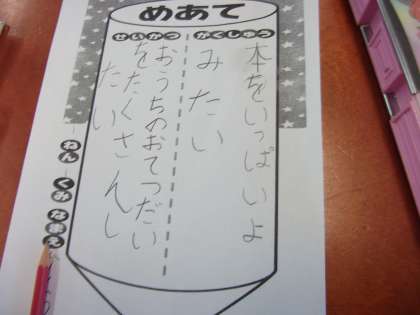 めあて
がくしゅう
本をいっぱいよ
みたい
せいかつ
おうちのおてつだい
をたくさんし
たい
ねん くみ なまえ